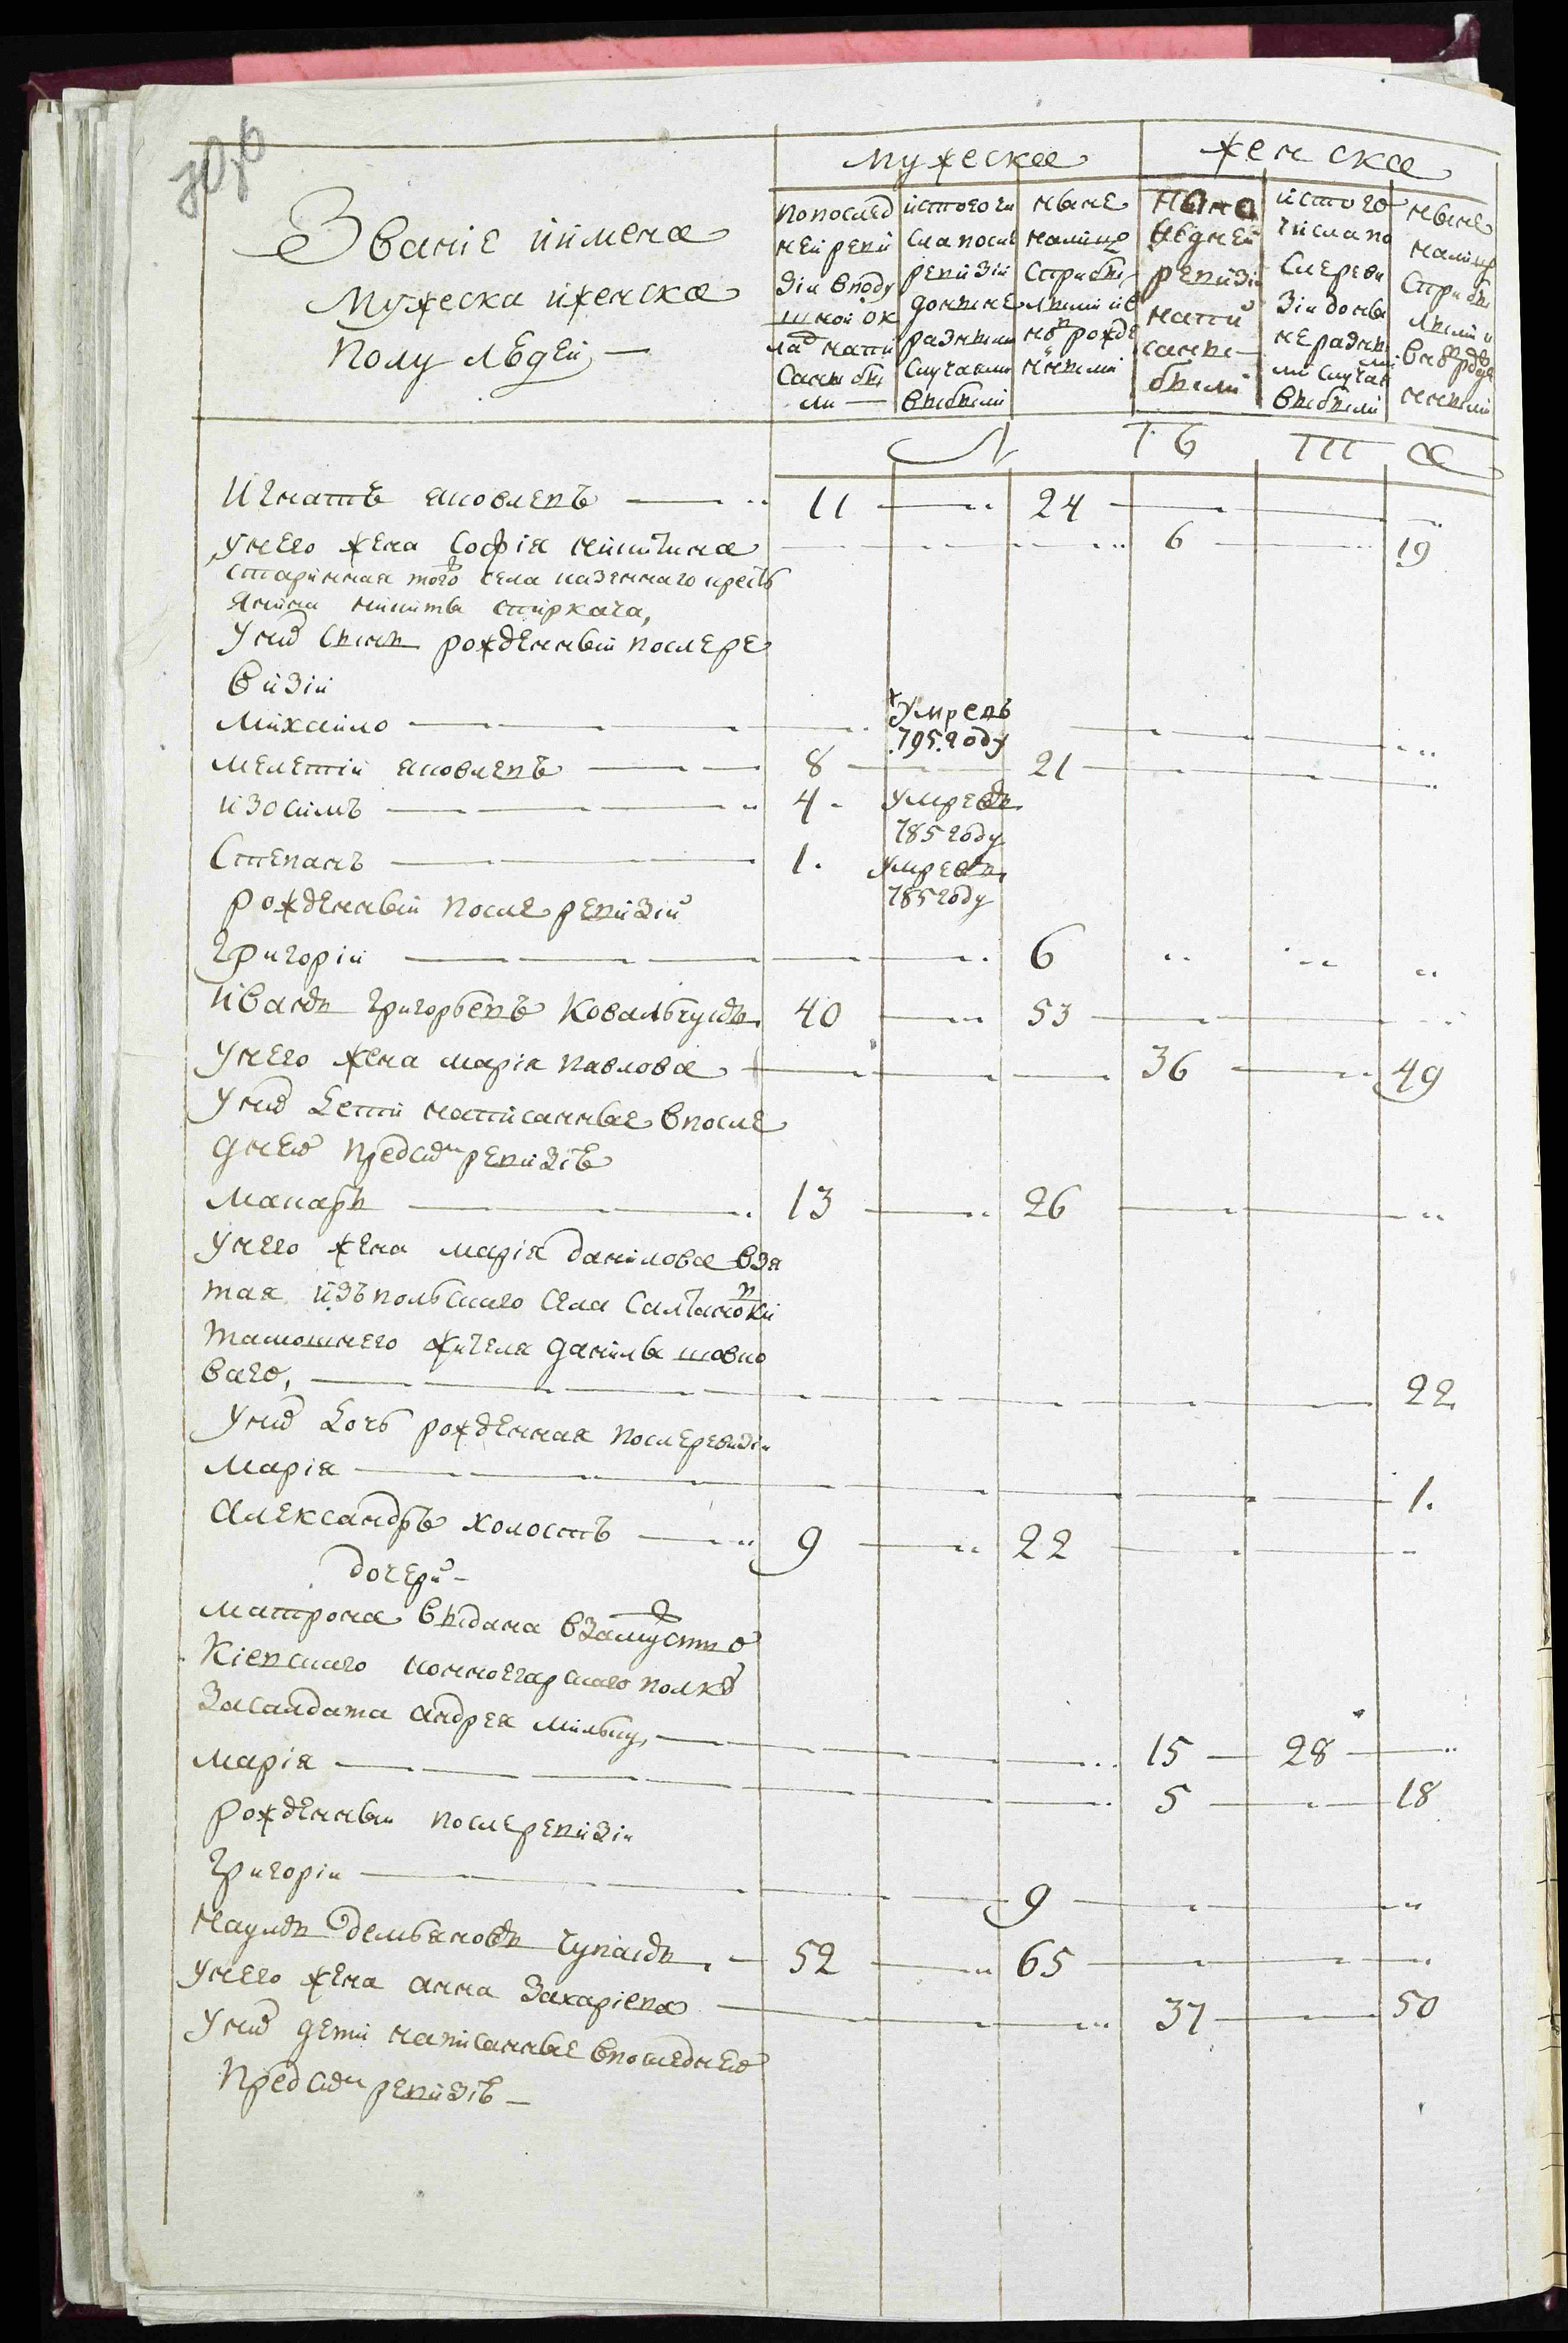 мужеска женска
Званіе иимена
Мужеска иженска
полу людей —
попослед
ней реви
зіи вподу
шной ок
ладъ напи
саны бы
ли —
истого чи
сла посл
ревизіи
доныне
разными
случаями
выбыли
ныне
налицо
Сприбы
лыми и в
новъ рожде
нными
ревизіи
напи
саны
были
истого
числа по
сле реви
зіи доны
не разны
ми случая
ми
выбыли
ныне
налицо
Сприбы
лыми и
вновь рожде
нными
Л Т Б ТТТ а
Игнатъ яковлевъ — 11 — 24 —
унего жена Софія никитина 6 — 19
старинная того села казеннаго крестъ
янина никиты стиркача,
Уних сынъ рожденный послере
визіи
Михайло — Умревъ
795 году
мелетій яковлевъ — 8 — 21 —
изосимъ — 4 Умревъ
785 году
Степанъ — 1. Умревъ
785 году
рожденный после ревизіи
григорій — 6
Иванъ григорьевъ Ковальчукъ 40 — 53 —
Унего жена марія павлова — 36 — 49
Уних дети написанные впосле
днею пред сим ревизіе
макаръ — 13 — 26 —
Унего жена марія данилова взя
тая изъ польскаго села Салтановки
тамошнего жителя данилы шовко
ваго, — 22
Уних дочь рожденная послеревизіи
Марія — 1.
Александръ холостъ — 9 — 22 —
дочери —
матрона выдана взамужство
Кіевскаго конноегарскаго полку
засалдата андрея милку, — 15 — 28 —
марія — 5 — 18
рожденный послеревизіи
григоріи — 9 —
Наумъ демьяновъ чупакъ — 52 — 65 —
Унего жена анна Захаріева — 37 — 50
Уних дети написанные впоследнею
пред сим ревизіе —